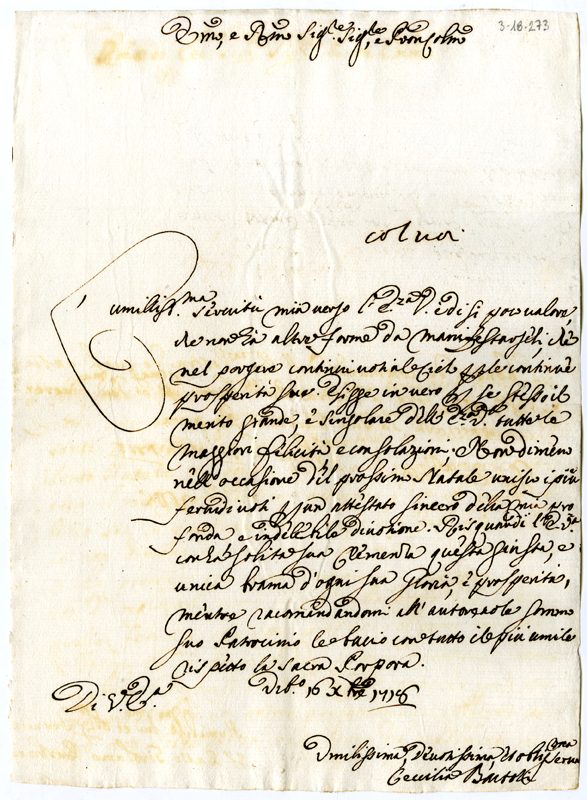 3-18-273
Emo, e Rmo Sigr. Sigr., e Pron Colmo
umilissma servitù mia verso l'Eza V. è di sì poco valore,
che non hà altre forme da manifestarseli, che
nel porgere continui voti al Ciel per le continue
prosperità sue. Esigge in vero per se stesso il
merito grande, e singolare dell'Eza Va tutte le
maggiori felicità e consolazioni, Nondimeno
nell'occasione del prossimo Natale unisco i più
fervidi voti per un attestato sincero della mia pro
fonda e indelebile divotione. Risguardi l'E.Va
con la solita sua Clemenza questa giusta, e
unica brama d'ogni sua gloria, e prosperità,
mentre racomandandomi all'autorevole sommo
suo Patrocinio le bacio con tutto il più umile
rispetto la Sacra Porpora.
Di V.Eza
16 Xbre 1718
Umilissima, Divotissima, et obligma Serva
Cecilia Bartoli